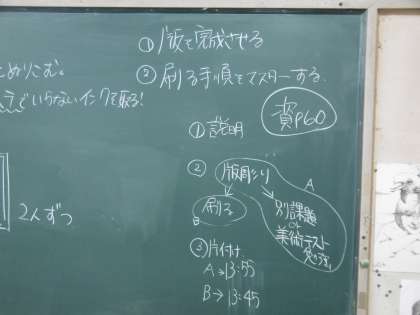 ① 版を完成させる
② 刷る手順をマスターする
とめりこむ。
でいらないインクを取る!
2人ずつ
資P60
① 説明
② 版彫り
A
刷る
B
別課題
or
美術テスト
③ 片付け
A→13:55
B→13:45